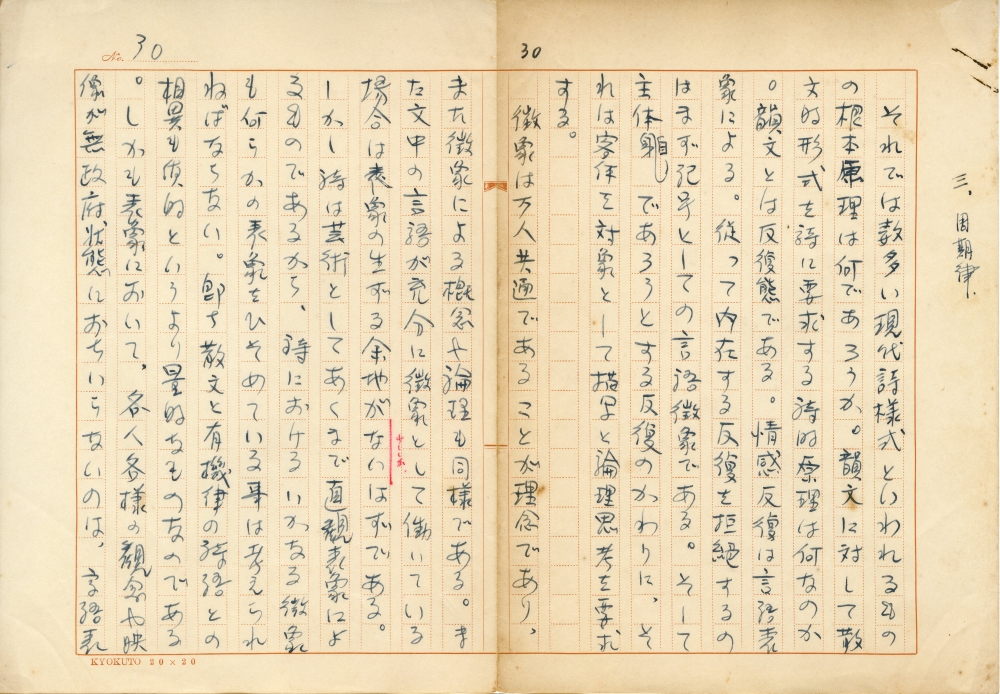 No. 30
30
三、周期律
それでは数多い現代詩様式といわれるもの
の根本原理は何であろうか。韻文に対して散
文的形式を詩に要求する詩的原理は何なのか
。韻文とは反復態である。情感反復は言語表
象による。従って内在する反復を拒絶するの
はまず記号としての言語徴象である。そして
主体であろうとする反復のかわりに、そ
れは客体を対象として描写と論理思考を要求
する。
徴象は万人共通であることが理念であり、
また徴象による概念や論理も同様である。ま
た文中の言語が充分に徴象として働いている
場合は表象の生ずる余地がないはずである。
しかし詩は芸術としてあくまで直観表象によ
るものであるから、詩におけるいかなる徴象
も何らかの表象をひそめている事は考えられ
ねばならない。即ち散文と有機律の詩語との
相異も質的というより量的なものなのである
。しかも表象において、各人各様の観念や映
像が無政府状態におちいらないのは、言語表
KYOKUTO 20×20